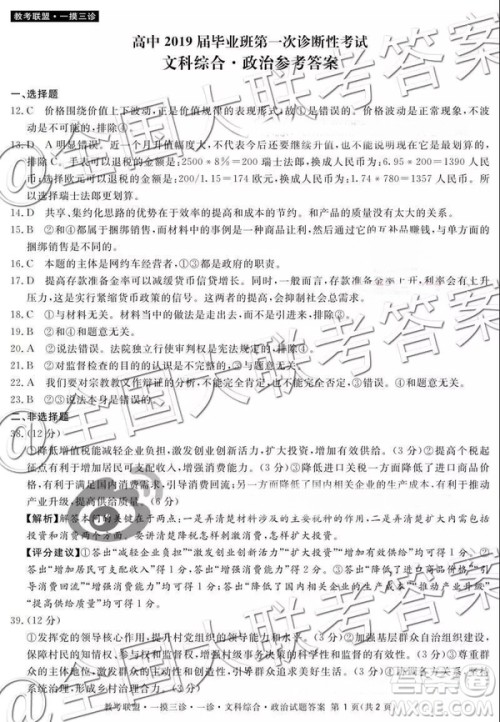 教考联盟·一摸三诊
高中 2019 届毕业班第一次诊断性考试
文科综合·政治参考答案
一、选择题
12. C 价格围绕价值上下波动,正是价值规律的表现形式,故①是错误的。价格波动是正常现象,不波
动是不可能的,排除④
13. D A 明显错误。近一个月升值幅度大,不代表今后会一直升值,也不能说明现在它是最划算的,
排除 C。手表可以退税的金额是:2500*8%=200 瑞士法郎,换成人民币为:6.95*200=1390 人民
币;选择欧元可以退税的金额是:200/1.15=174 欧元,换成人民币为:1.74*780=1357 人民币。所以选
14. D 共享、集约化思路的优势在于效率的提高和成本的节约。和产品的质量没有太大的关系。
15. B ②和④都属于捆绑销售,而材料中的事例是一种商品让利,然后通过它的互补品赚钱,与单方面的
捆绑销售是不同的。
16. C 本题的主体是网约车经营者,①③都是政府的职责。
17. D 提高存款准备金率可以减缓货币信贷增长。同时,存款准备金率上升,利率会有上升
压力,这是实行紧缩货币政策的信号。与去库存的要求不一致。
18. C ①与材料无关。材料当中的做法是走出去,而不是引进来,排除③。
19. B ②和④和题意无关。
20. A ②说法错误。法院独立行使审判权是宪法规定的,排除④
21. B ②对监督检查的目的的认识是不到位的,③与题意无关。
22. A 我们要对宗教教义作辩证的分析,不能一概否定,③错误。④和题意无关。
23. B ②③说法本身是错误的。
二、非选择题
38. (12 分)
①降低增值税能减轻企业负担,激发创业创新活力,扩大投资,增加有效供给。(3 分)②提高个税起
征点有利于增加居民可支配收入,增强消费能力。(3 分)③扩大进口关税减免一方面降低了进口商品价
格,有利于满足国内消费需求,提升消费质量,另一方面有利于降低企业生产成本,推动产业升级,提
高供给质量。(6 分)
【解析】解答本题的关键在于两方面,一是弄清楚材料涉及的主要税种,二是弄清楚扩大内需包
括扩大消费需求和扩大投资需求两个方面。
【评分建议】①答出“减轻企业负担”“激发创业创新活力”“扩大投资”“增加有效供给”均可得 1 分。②
答出“增加居民收入”“增强消费能力”均可得 1 分。③答出“满足国内消费需求”“推动产业升级”
“提高供给质量”均可得 1 分。
39. (12 分)
①发挥党的领导核心作用,增强基层党组织的领导能力和水平。(3 分)②加强基层群众自治组织建
设,增强村级事务的科学性和有效性。(3 分)③坚持群众观点和群众路线,激发群众积极性、主
动性和创造性,引导群众追求美好生活。(3 分)④坚持依法治国和以德治国相结合,实现自治、法治、
德治相结合,形成乡村治理合力。(3 分)
教考联盟·一摸三诊·一诊·文科综合·政治试题答案 第 1 页(共 2 页)
@全国大联考答案